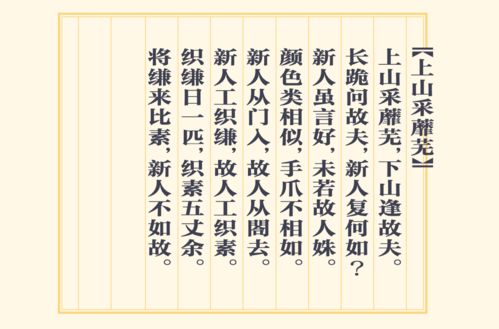 【上山采蘼芜】
上山采蘼芜，下山逢故夫。
长跪问故夫，新人复何如？
新人虽言好，未若故人姝。
颜色类相似，手爪不相如。
新人从门入，故人从閤去。
新人工织缣，故人工织素。
织缣日一匹，织素五丈余。
将缣来比素，新人不如故。